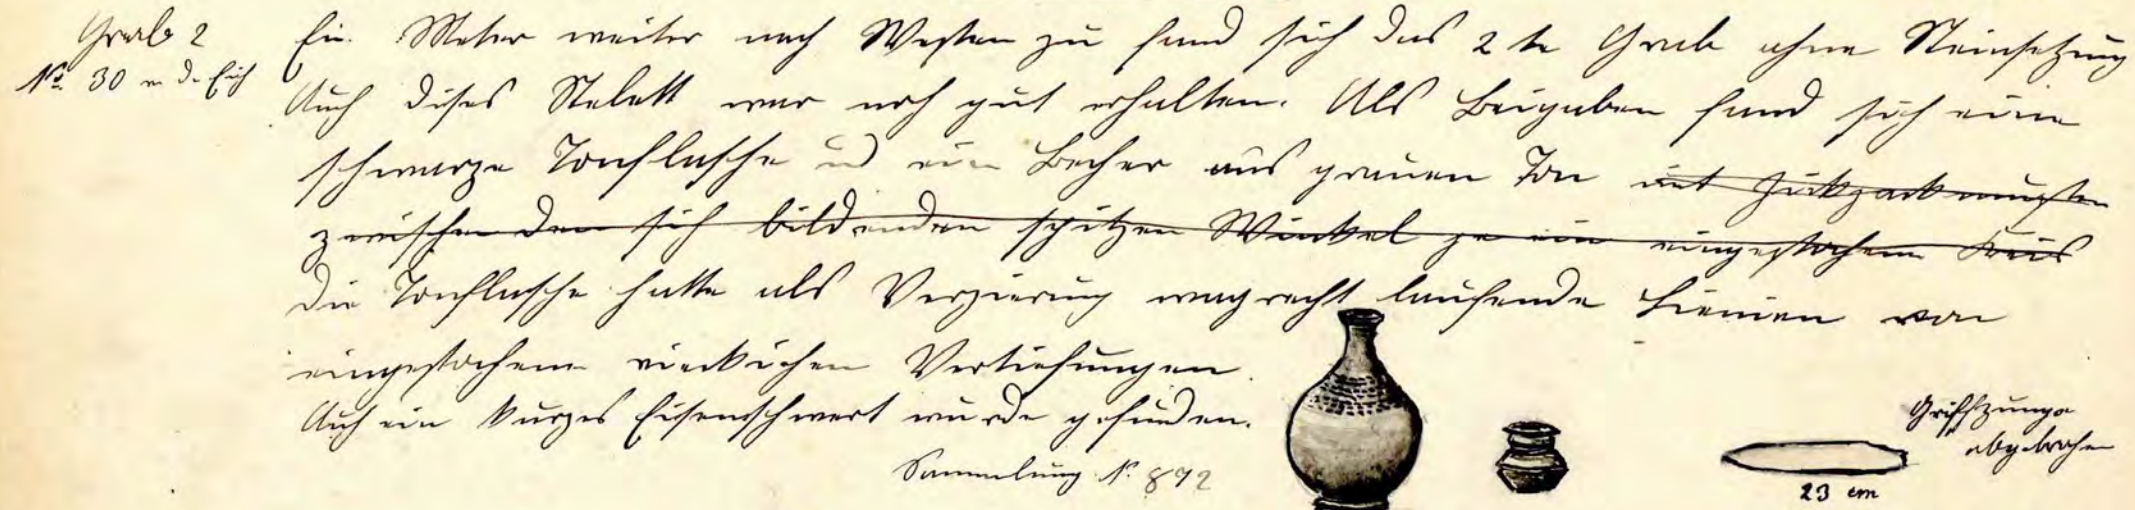 Grab 2
No. 30 in d. Eich
Ein Meter weiter nach Westen zu fand sich das 2te Grab ohne Steinsetzung
Auch dises Skelett war noch gut erhalten. Als Beigaben fand sich eine
schwarze Tonflasche und ein Becher aus grauen Ton mit Zickzackmuster
zwischen den sich bildenden spitzen Winkel je ein eingestochener Kreis
Die Tonflasche hatte als Verzierung wagrecht laufende Linien von
eingestochenen viereckichen Vertiefungen.
Auch ein kurzes Eisenschwert wurde gefunden.
Sammlung N. 892
Griffzunge
abgebrochen
23 cm